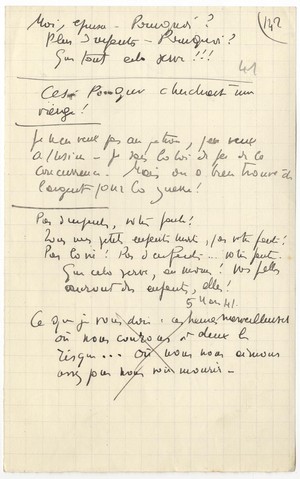 Moi, épouse - Pourquoi ?
Plus d'enfants - Pourquoi ?
Que tout cela serve !!!
142
41
César Pompeur cherchait une
vierge !
Je n'en veux pas au patron, j'en veux
à l'usine - Je sais la loi de fer de la
concurrence. Mais on a bien trouvé de
l'argent pour la guerre !
Pas d'enfants, votre faute !
Tous mes petits enfants morts, par votre faute !
Pas la vie ! Pas d'enfants... votre faute -
Que cela serve, au moins ! Vos filles
auront des enfants, elles !
5 Mars 41.
Ce que je vous dois : ces heures merveilleuses
où nous courons à deux le
risque... Où nous nous aimons
assez pour nous voir mourir -